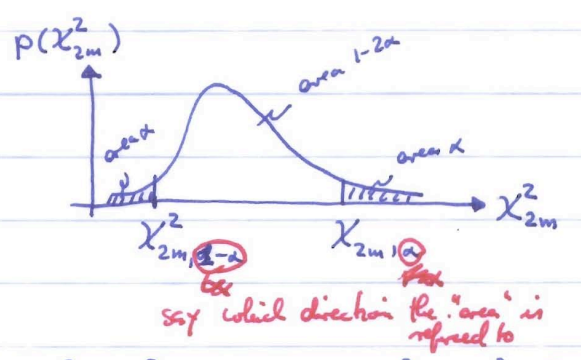 p(χ²₂ₘ)
area 1-2α
area α
area α
χ²₂ₘ
χ²₂ₘ,₁-α
χ₂ₘ,α
say which direction the "area" is
refreed to